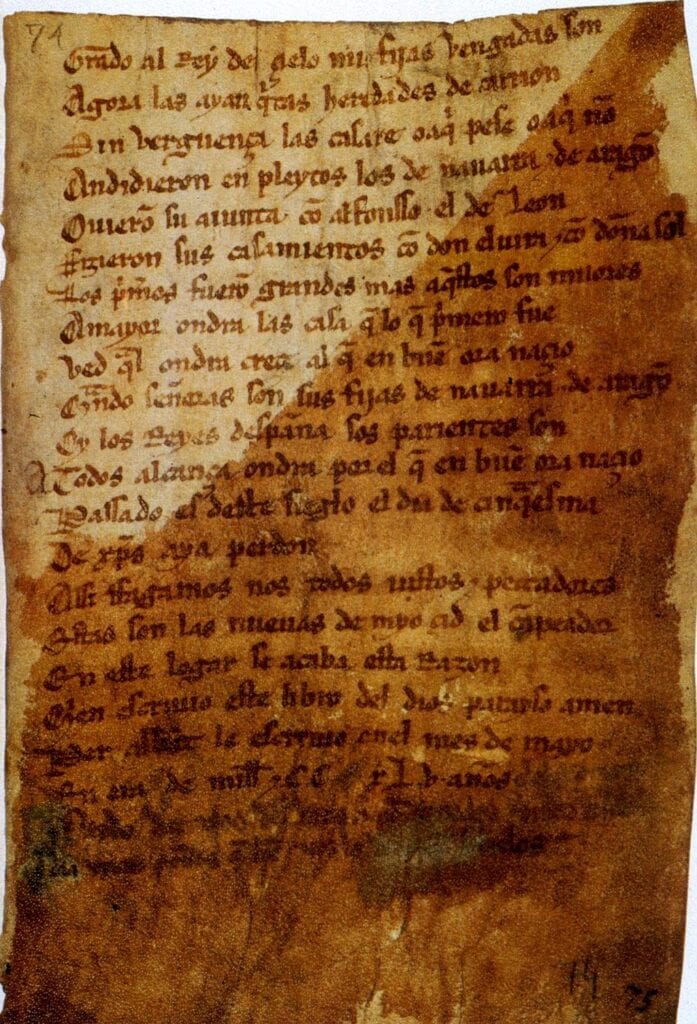 74
Grado al Rey del çielo mis fijas vengadas son
Agora las ayan q̃tas heredades de carrion
Sin verguença las casare o aq̃ pese o aq̃ nõ
Andidieron en pleytos los de nauarra ⁊ de aragõ
Ouierõ su aiunta cõ alfonsso el de Leon
ffizieron sus casamientos cõ don eluira ⁊ cõ doña sol
Los p̃meros fuerõ grandes mas aq̃stos son miiores
A mayor ondra las casa q̃ lo q̃ p̃mero fue
Ved q̃l ondra creçe al q̃ en buẽ ora naçio
Q̃ndo señoras son sus fijas de nauarra ⁊ de aragõ
Oy los Reyes despaña sos parientes son
A Todos alcança ondra por el q̃ en buẽ ora naçio
Passado es deste sieglo el dia de cinq̃esma
De xp̃s aya perdon
Assi ffagamos nos todos iustos ⁊ peccadores
Estas son las nueuas de myo çid el cãpeador
En este logar se acaba esta Razon
Quien escriuio este libro del dios parayso amen
Per abbat le escriuio enel mes de mayo
En era de mill ⁊ .C.C. x.L.v. años
14
75